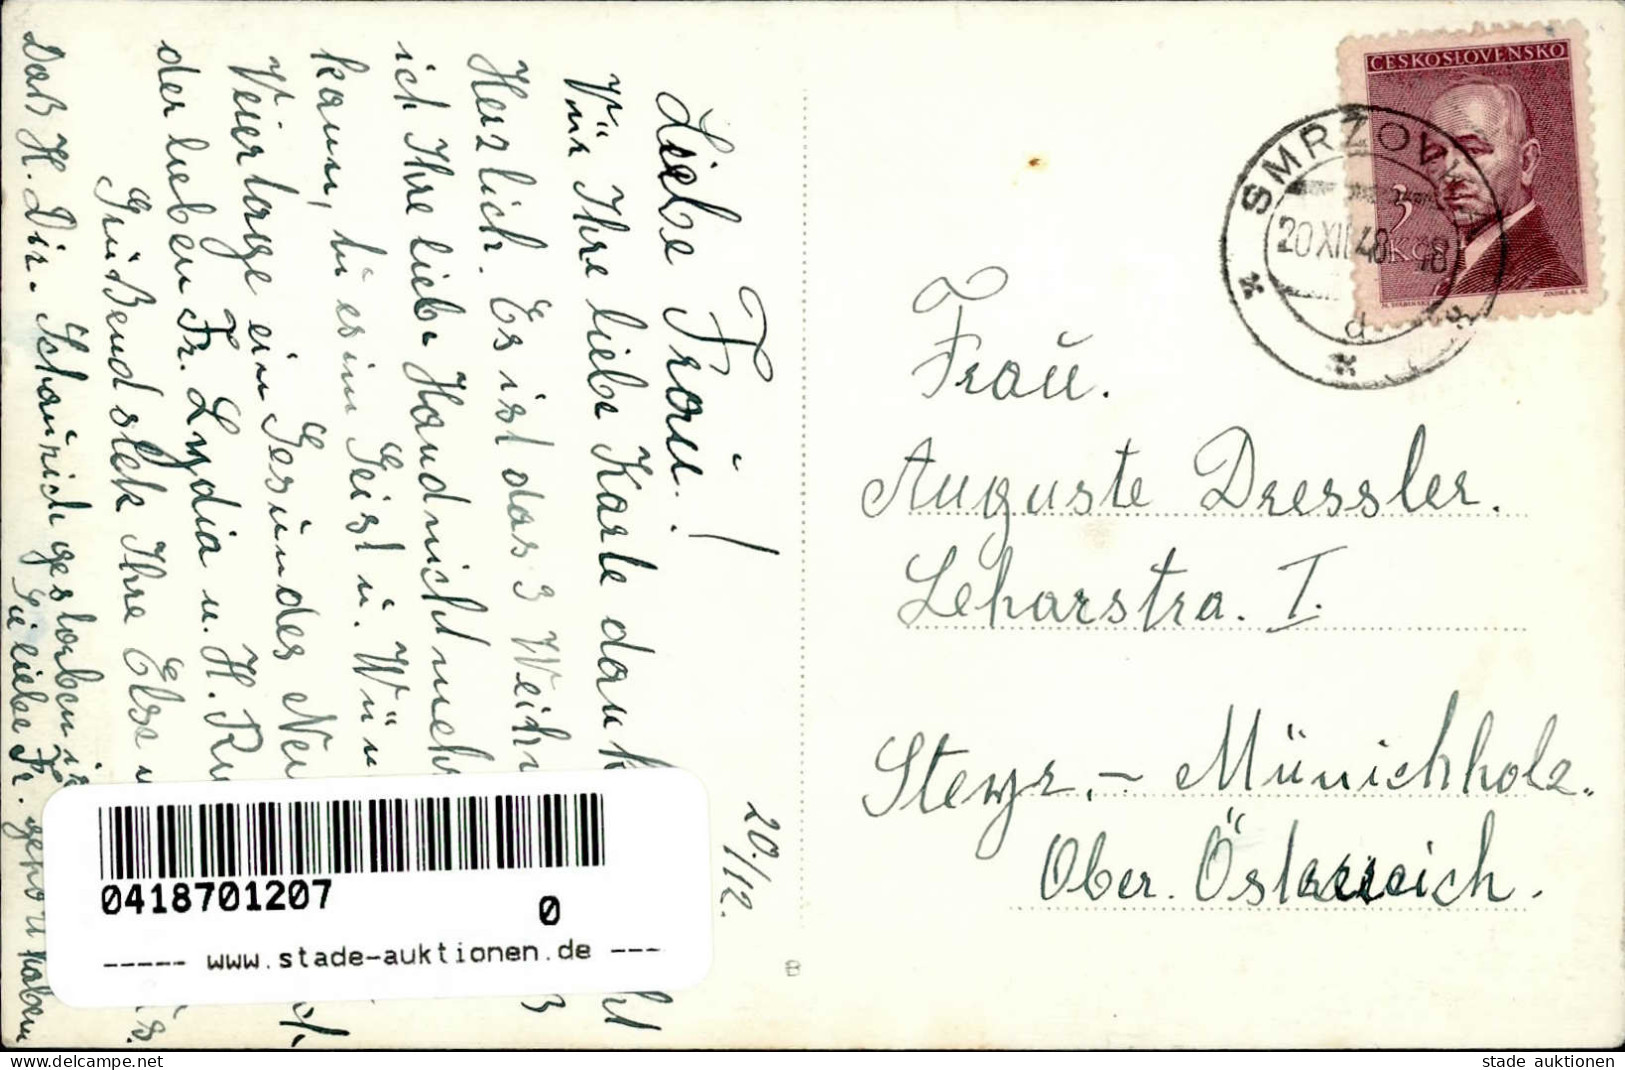 Liebe Frau!
20./12.
Vür Ihre liebe Karte dank
Herzlich. Es ist das 3 Weihn
ich Ihre liebe Hand nicht meh
kann, tu es im Geist u. Wün
Veiertage ein Gesundes Neu
der lieben Fr. Lydia u. H. Ru
Grüßend stek Ihre Else u
Daß H. Dir. Schaurich gestorben ist
Sie liebe Fr. gehört haben
ČESKOSLOVENSKO
3
Kčs
SMRŽOVKA
20.XII.48
d
Frau.
Auguste Dressler.
Leharstra. I.
Steyr. - Münichholz.
Ober. Österreich.
0418701207
0
----- www.stade-auktionen.de ----
B
https://www.delcampe.net
stade auktionen